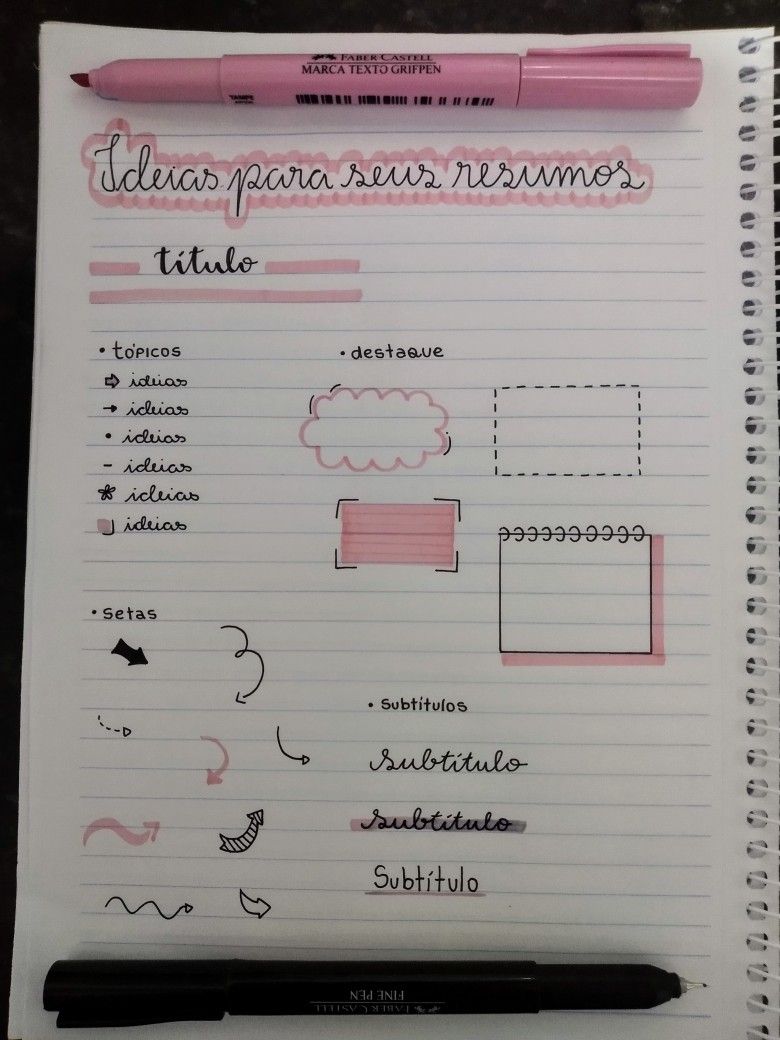 FABER-CASTELL
MARCA TEXTO GRIFPEN
Ideias para seus resumos
título
• tópicos
ideias
ideias
• ideias
- ideias
* ideias
ideias
• destaque
• setas
• subtítulos
subtítulo
subtítulo
Subtítulo
FABER-CASTELL
FINE PEN